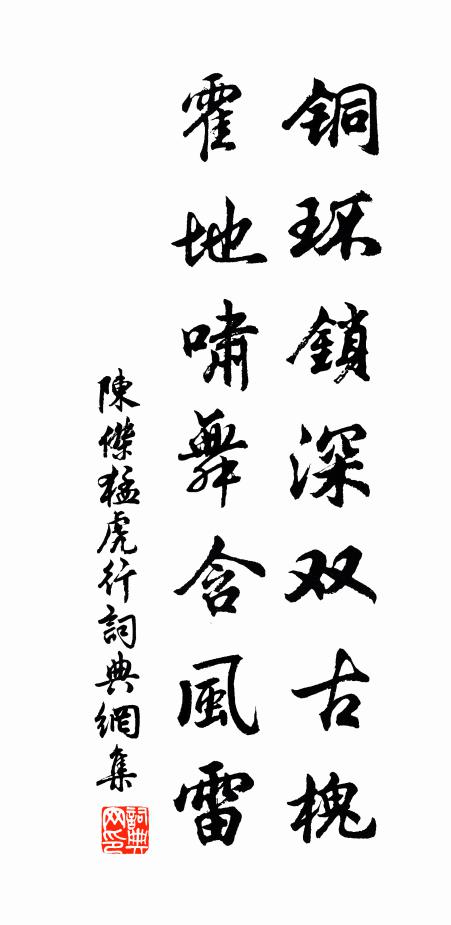 铜环鎖深双古槐
霍地嘯舞含風雷
陳傑猛虎行詞典網集
詞典网印